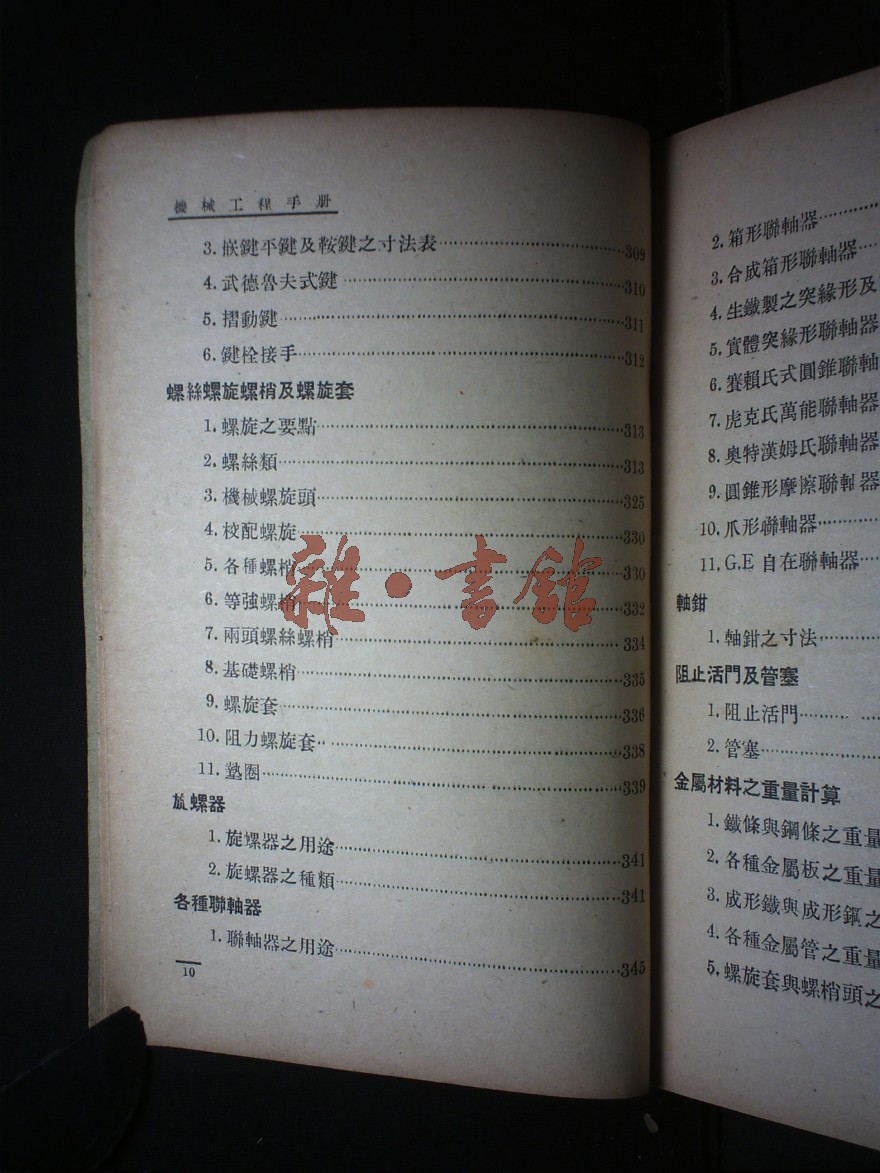 機械工程手册
3. 嵌鍵平鍵及鞍鍵之寸法表……309
4. 武德魯夫式鍵……310
5. 摺動鍵……311
6. 鍵栓接手……312
螺絲螺旋螺梢及螺旋套
1. 螺旋之要點……313
2. 螺絲類……313
3. 機械螺旋頭……325
4. 校配螺旋……330
5. 各種螺梢……330
6. 等強螺梢……332
7. 兩頭螺絲螺梢……334
8. 基礎螺梢……335
9. 螺旋套……336
10. 阻力螺旋套……338
11. 墊圈……339
旋螺器
1. 旋螺器之用途……341
2. 旋螺器之種類……341
各種聯軸器
1. 聯軸器之用途……345
10
雜·書館
2. 箱形聯軸器……
3. 合成箱形聯軸器……
4. 生鐵製之突緣形及
5. 實體突緣形聯軸器
6. 賽賴氏式圓錐聯軸
7. 虎克氏萬能聯軸器
8. 奧特漢姆氏聯軸器
9. 圓錐形摩擦聯軸器
10. 爪形聯軸器……
11. G.E 自在聯軸器……
軸鉗
1. 軸鉗之寸法……
阻止活門及管塞
1. 阻止活門……
2. 管塞……
金屬材料之重量計算
1. 鐵條與鋼條之重量
2. 各種金屬板之重量
3. 成形鐵與成形鋼之
4. 各種金屬管之重量
5. 螺旋套與螺梢頭之